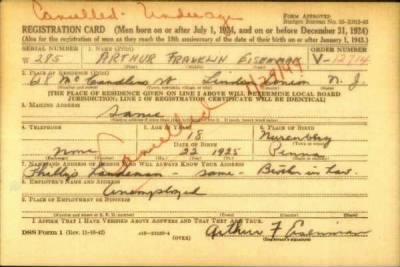 Cancelled - Underage
FORM APPROVED
REGISTRATION CARD (Men born on or after July 1, 1924, and on or before December 31, 1924)
(Also for the registration of men as they reach the 18th anniversary of the date of their birth on or after January 1, 1943.)
SERIAL NUMBER 1. NAME (Print) ORDER NUMBER
W 285 ARTHUR FRANKLIN EISENMAN V-12714
2. PLACE OF RESIDENCE (Print)
618 McCandless St Linden Union N. J.
[THE PLACE OF RESIDENCE GIVEN ON LINE 2 ABOVE WILL DETERMINE LOCAL BOARD
JURISDICTION; LINE 2 OF REGISTRATION CERTIFICATE WILL BE IDENTICAL]
3. MAILING ADDRESS
Same
Cancelled
4. TELEPHONE 5. AGE IN YEARS 6. PLACE OF BIRTH
18 Nurenberg
None DATE OF BIRTH
22 1925 Penna
7. NAME AND ADDRESS OF PERSON WHO WILL ALWAYS KNOW YOUR ADDRESS
Same - Brother in Law.
8. EMPLOYER'S NAME AND ADDRESS
Unemployed
9. PLACE OF EMPLOYMENT OR BUSINESS
I AFFIRM THAT I HAVE VERIFIED ABOVE ANSWERS AND THAT THEY ARE TRUE.
DSS Form 1 (Rev. 11-16-42) (OVER) Arthur F Eisenman